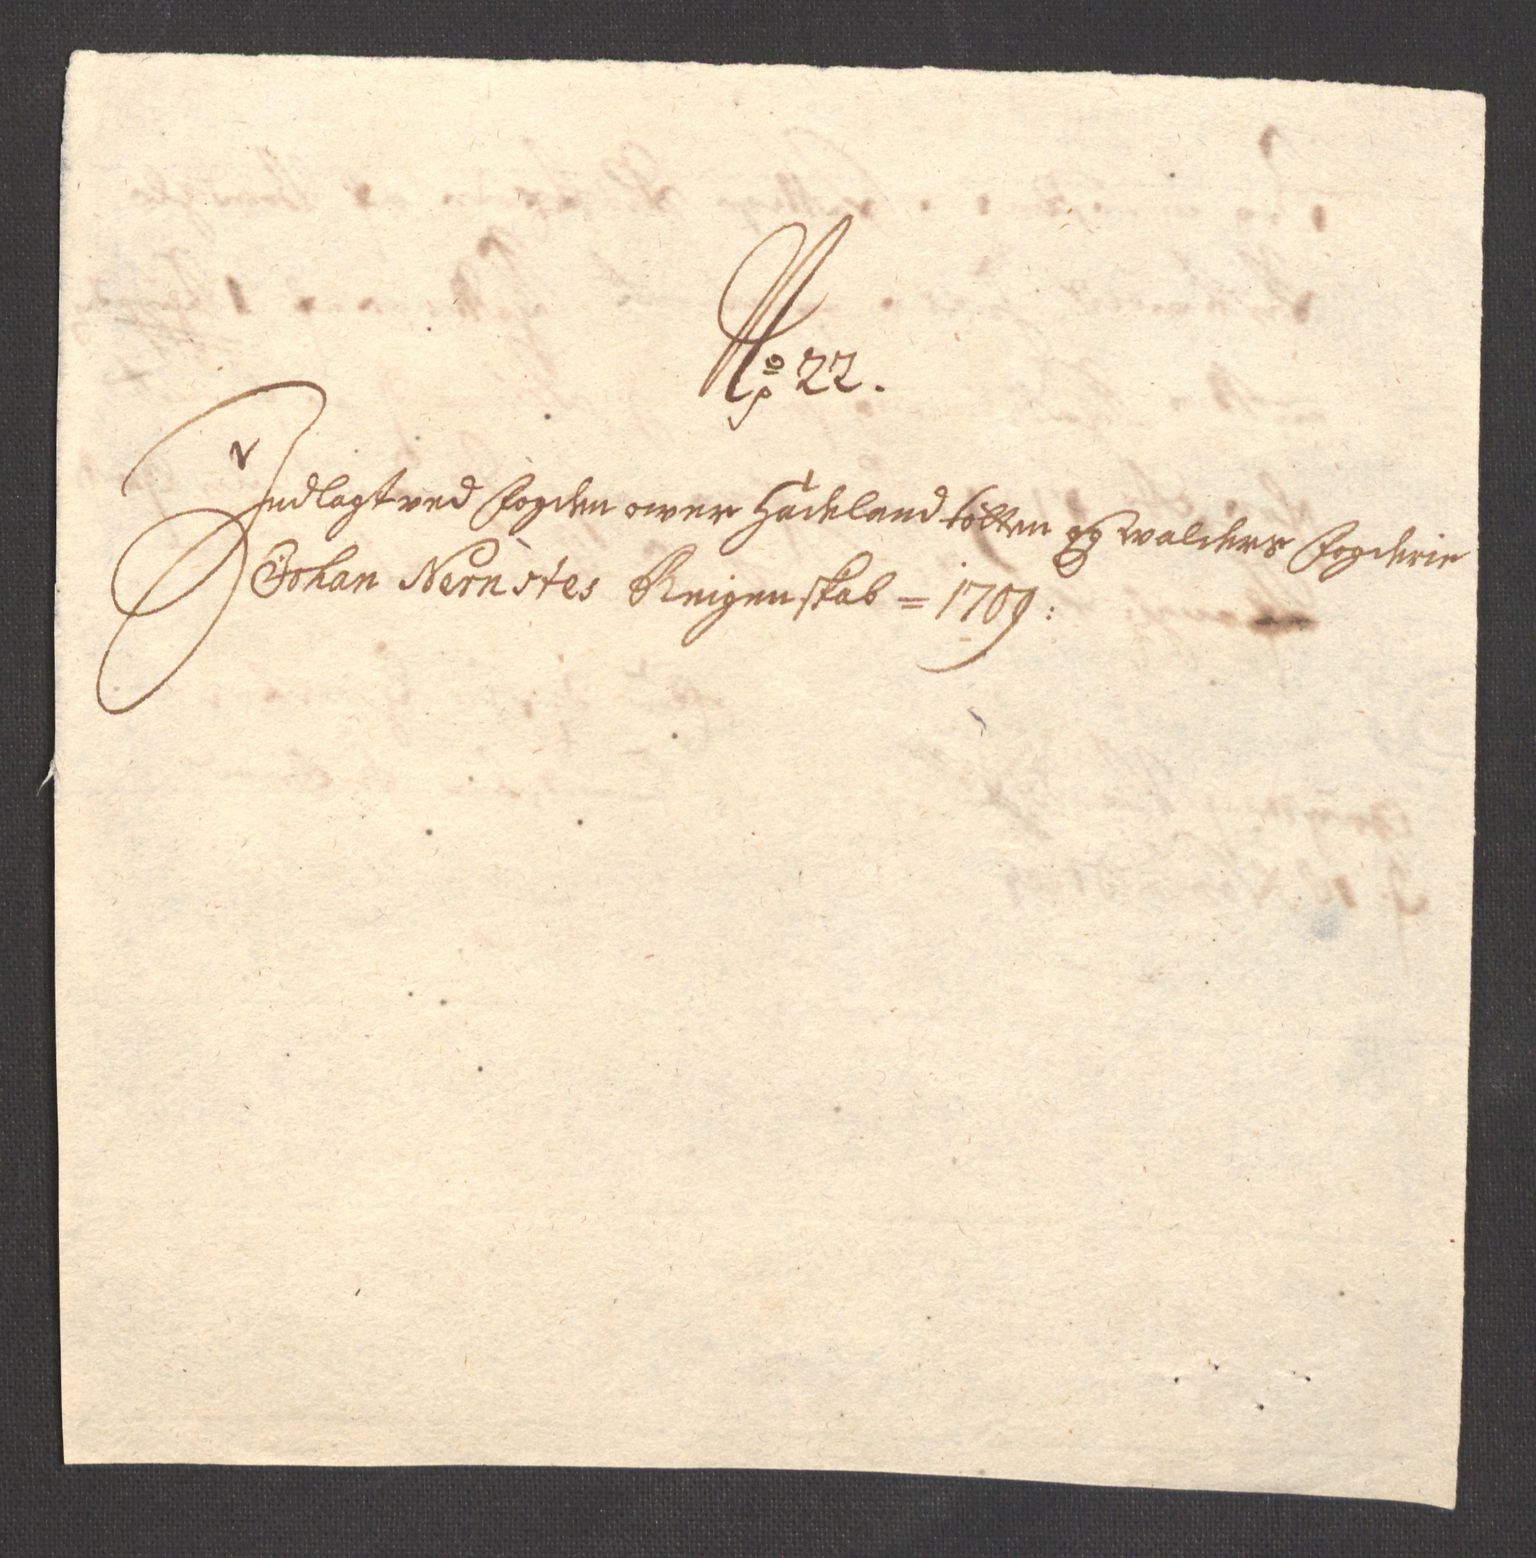 No 22.
Indlagt ved Fogden ower Hadeland totten og walders Fogderie
Johan Nernstes Reigenskab = 1709: